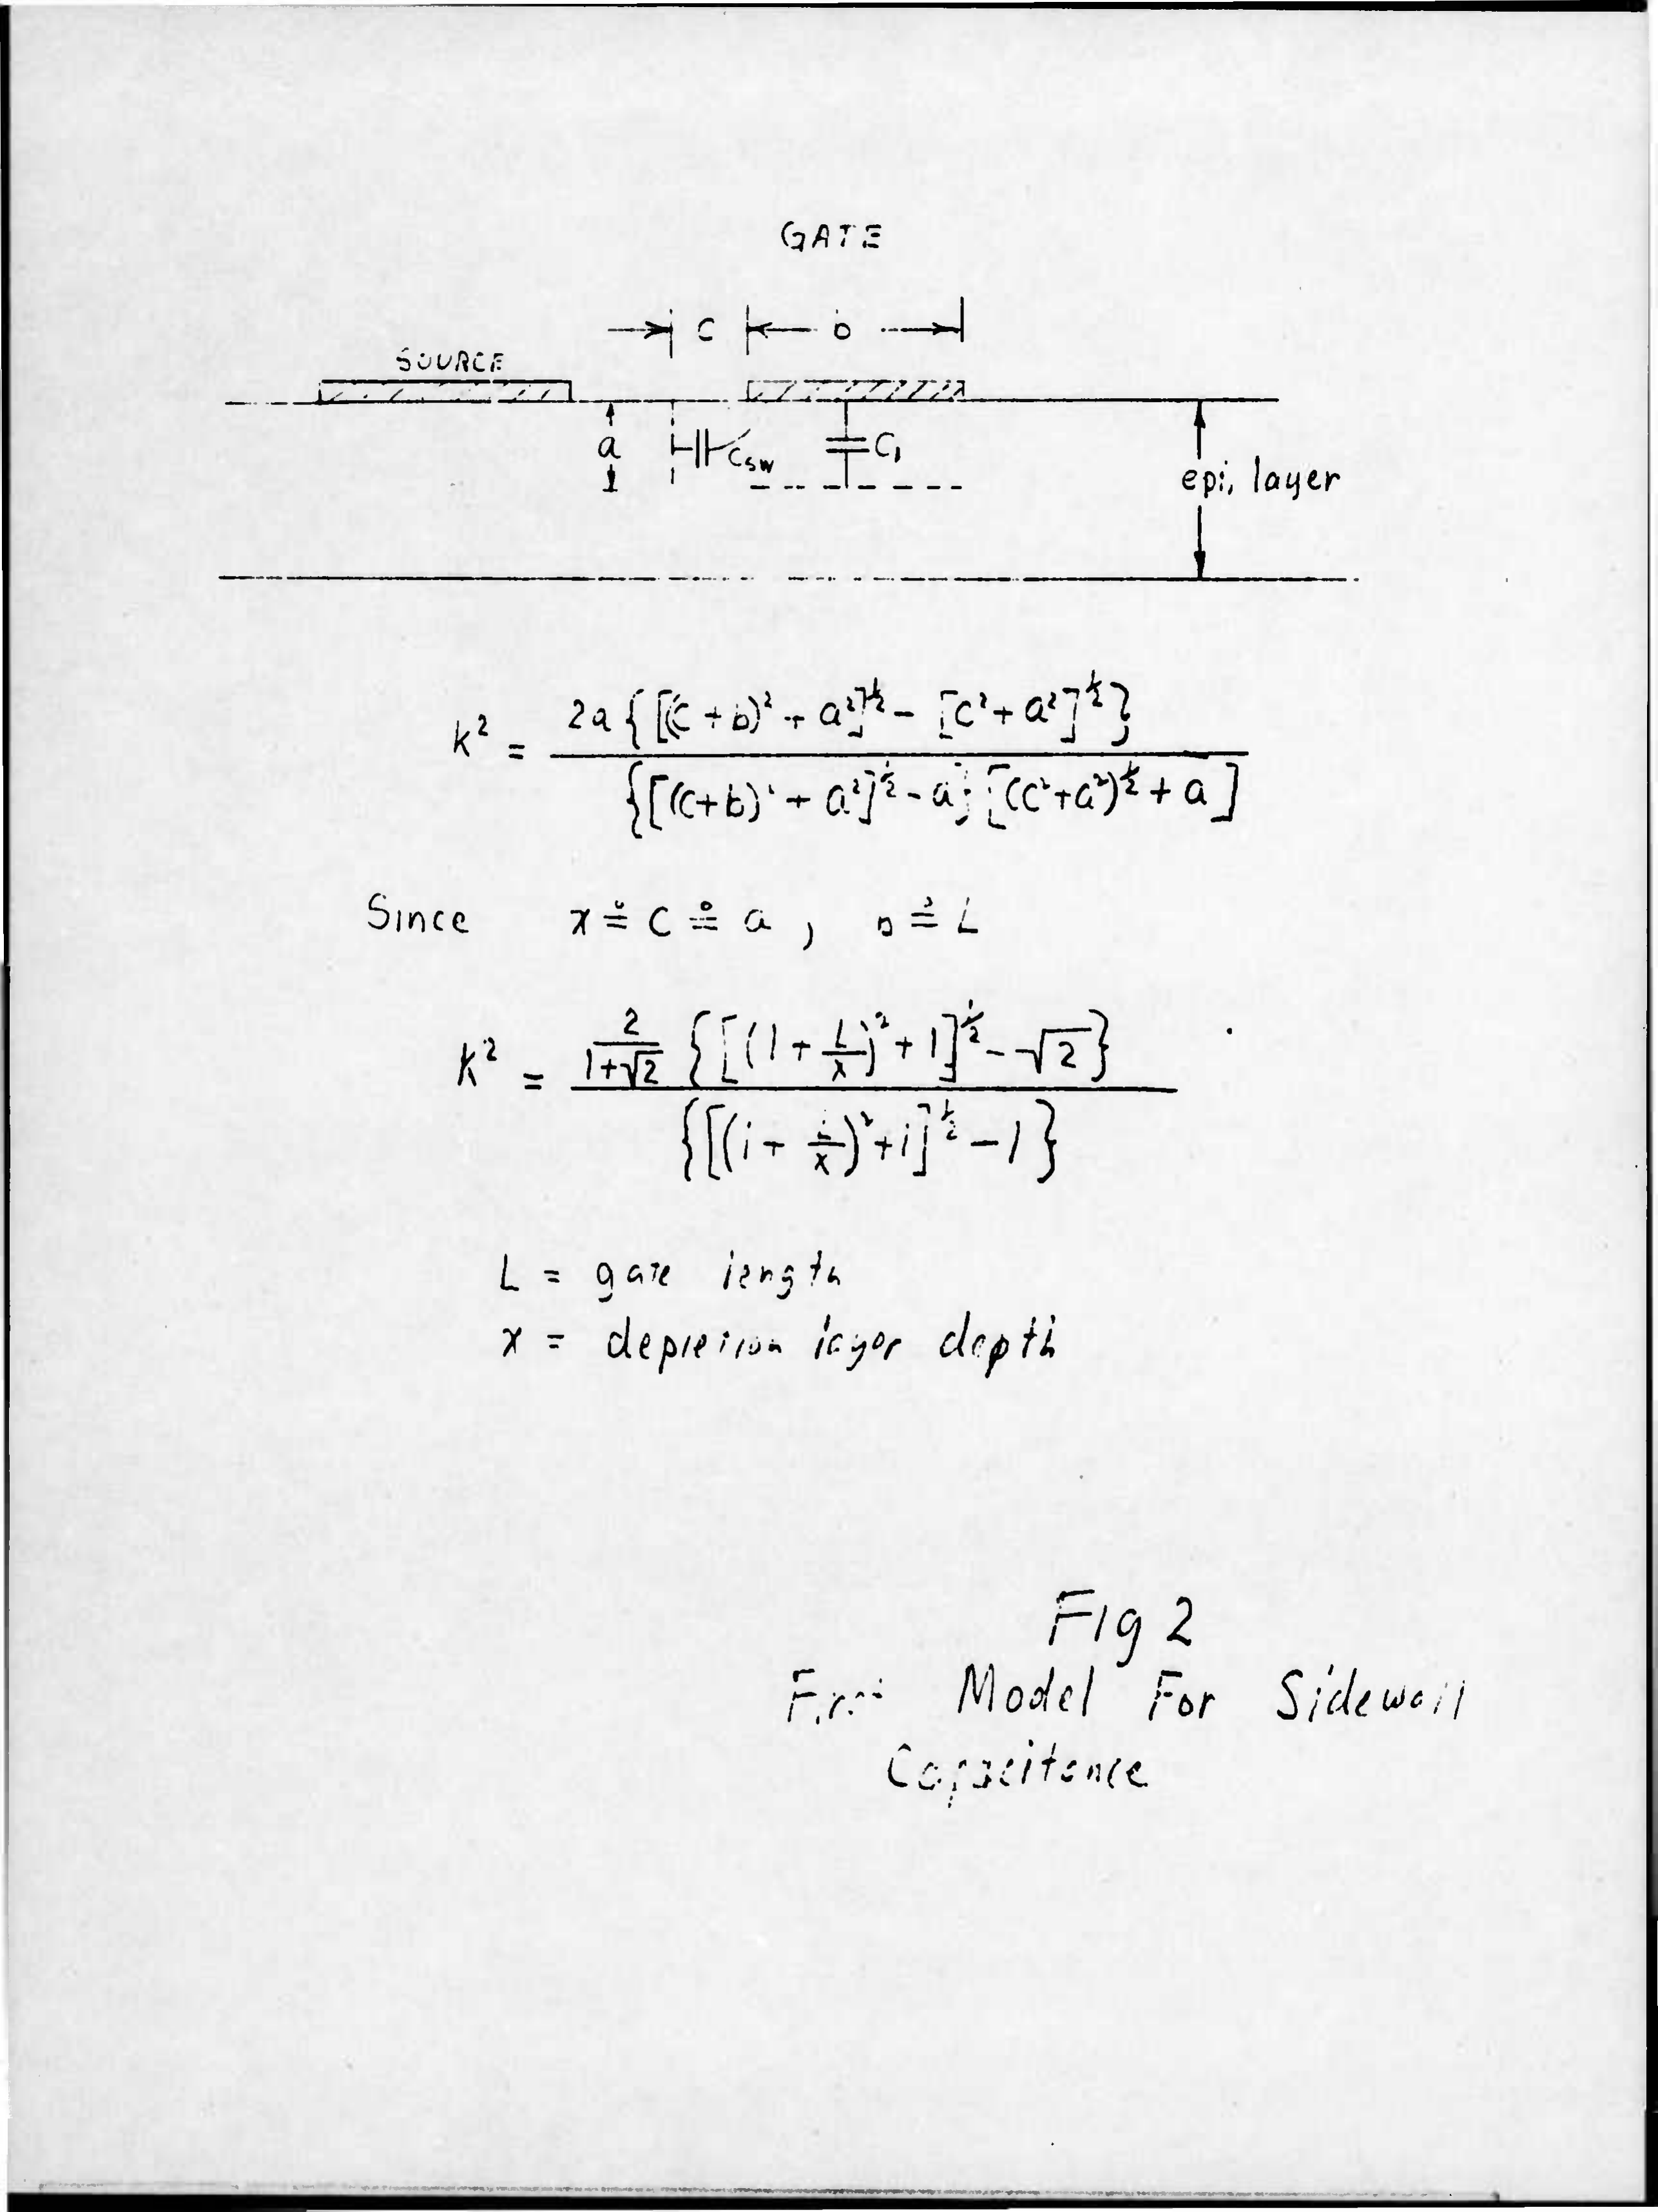 GATE
c b
SOURCE
a Csw C1
epi, layer
K² = 2a { [(c + b)² + a²]^½ - [c² + a²]^½ } / { [(c+b)² + a²]^½ - a } [(c²+a²)^½ + a ]
Since x ≐ c ≐ a , b ≐ L
K² = 2/(1+√2) { [(1 + L/x)² + 1]^½ - √2 } / { [(1 + L/x)² + 1]^½ - 1 }
L = gate length
x = depletion layer depth
Fig 2
First Model For Sidewall
Capacitance